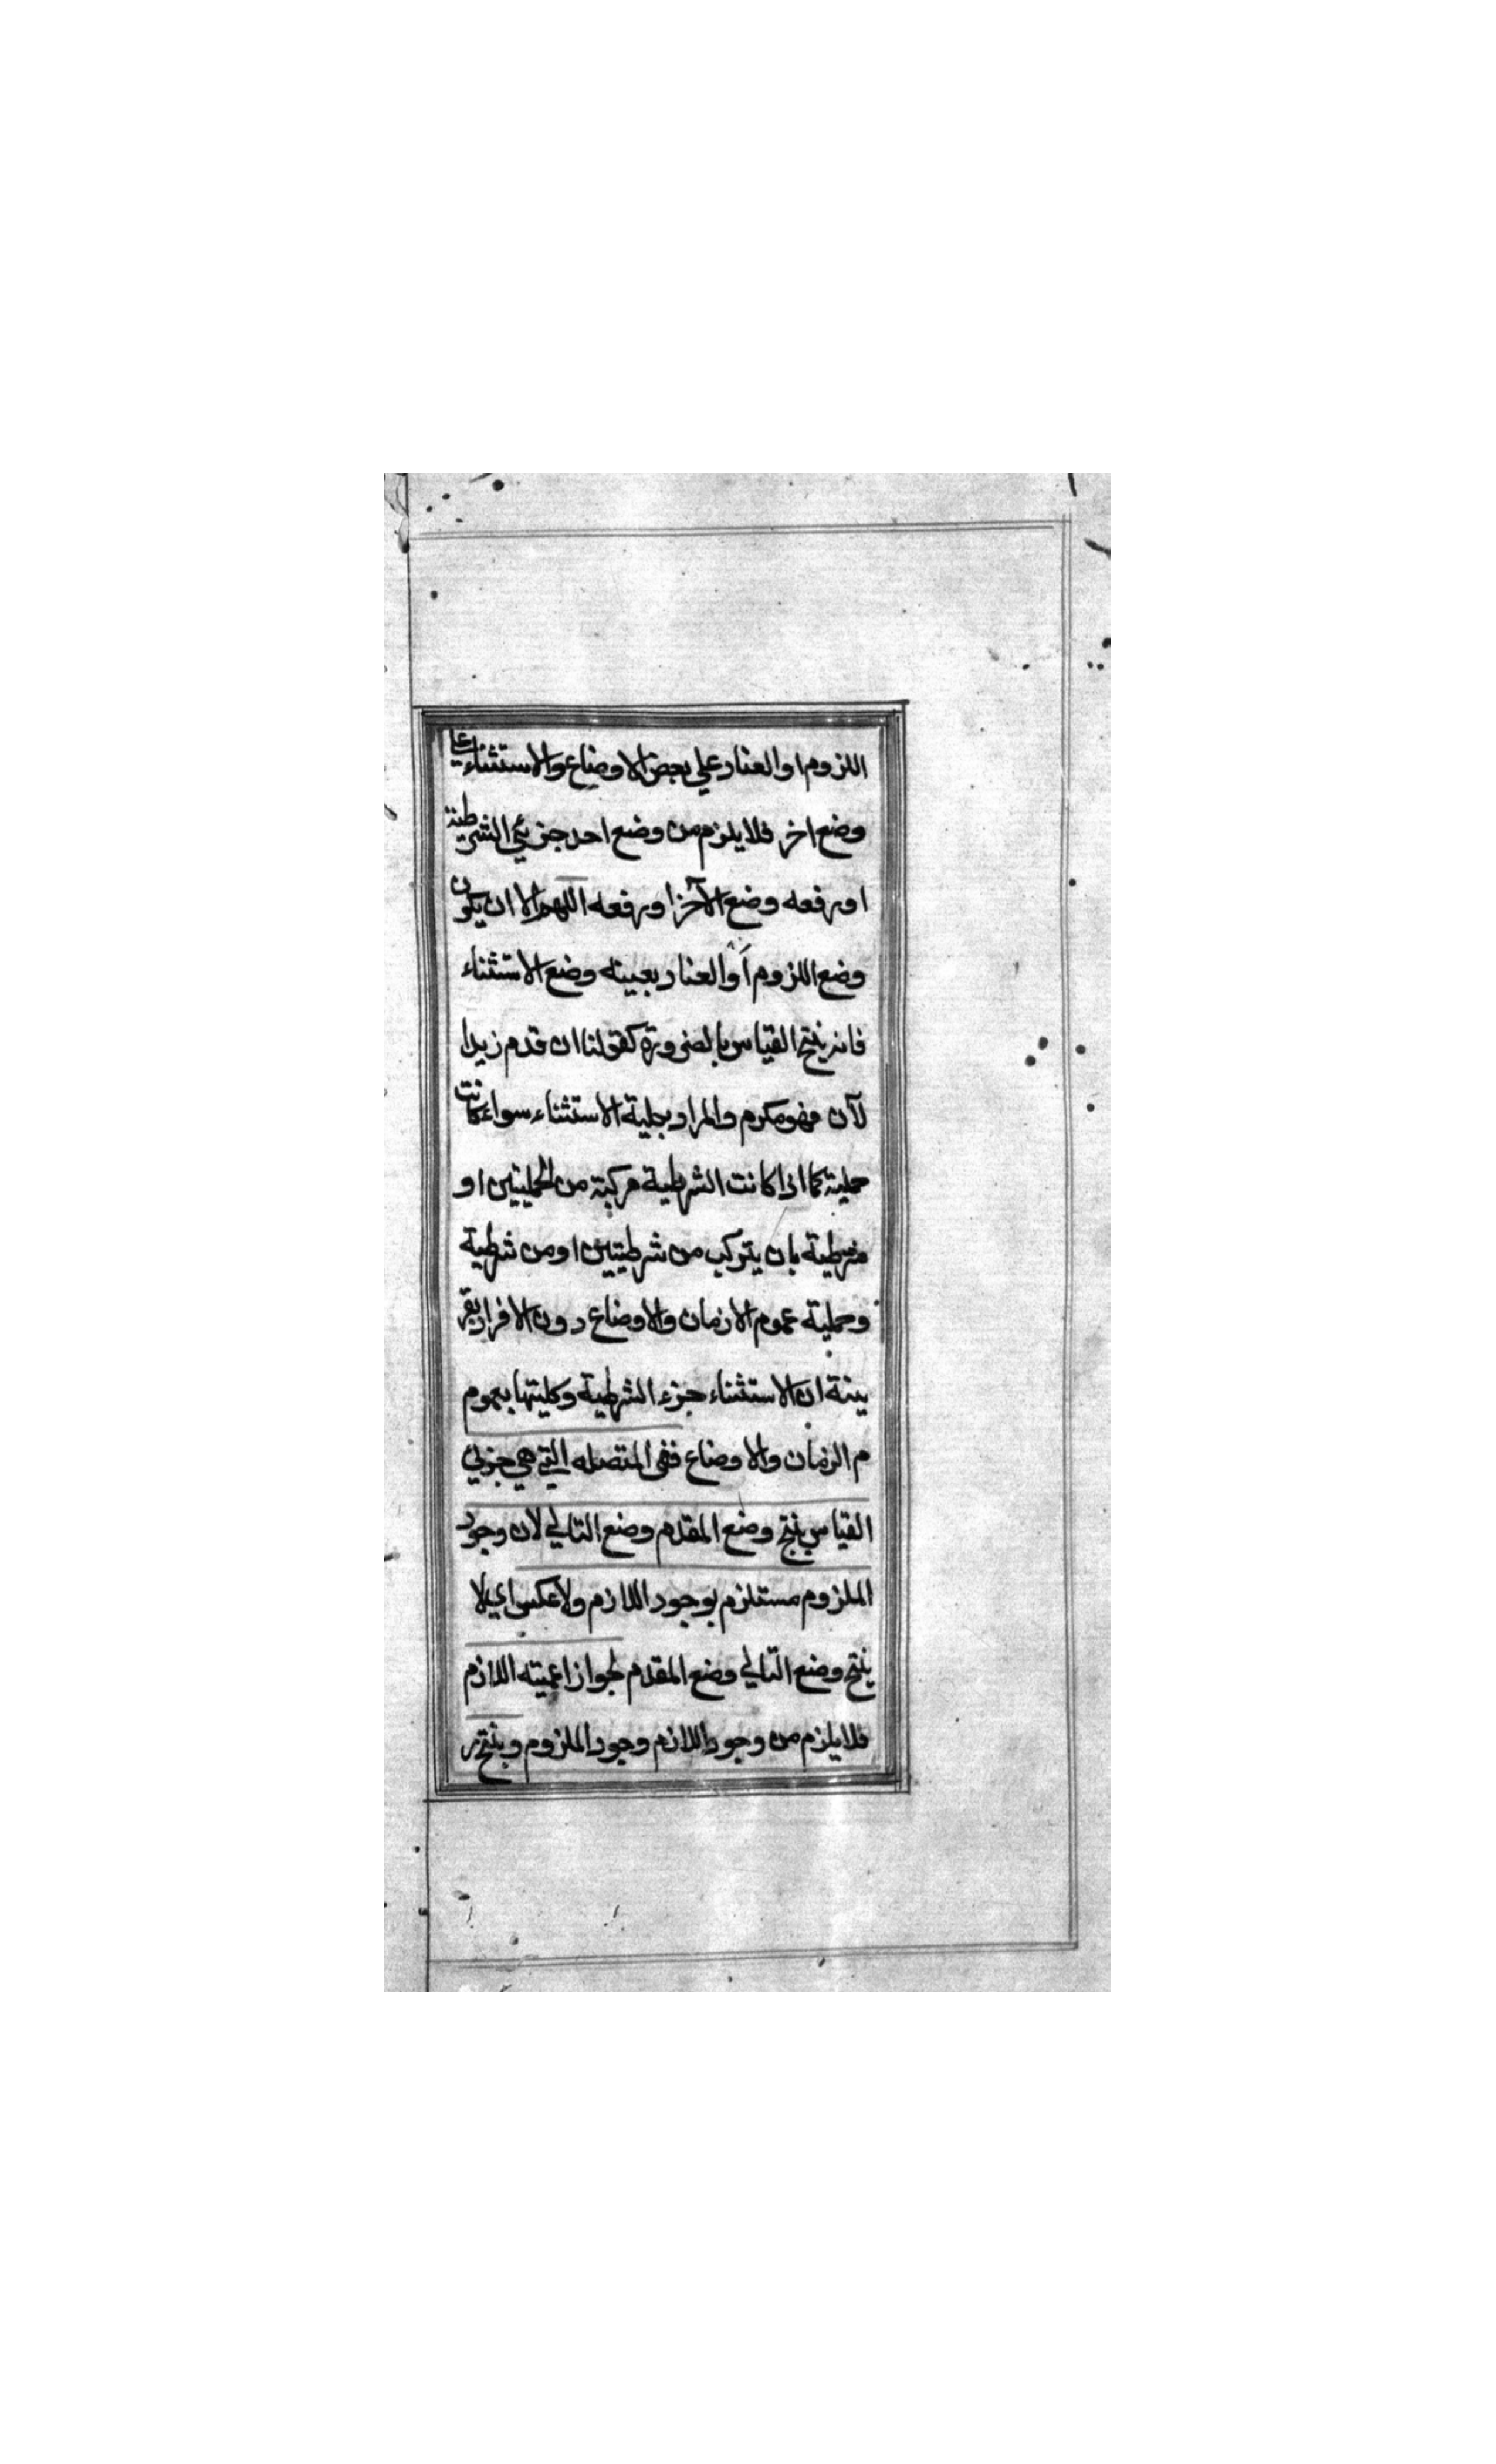 اللزوم او العناد علي بعض الاوضاع والاستثناء علي
وضع اخر فلا يلزم من وضع احد جزئي الشرطية
او رفعه وضع الآخر او رفعه اللهم الا ان يكون
وضع اللزوم أو العناد بعينه وضع الاستثناء
فانه ينتج القياس بالضرورة كقولنا ان قدم زيدا
لآن فهو مكرم والمراد بجلية الاستثناء سواء كانت
حملية كما اذا كانت الشرطية مركبة من الحمليتين او
شرطية بان يتركب من شرطيتين او من شرطية
وحملية عموم الازمان والاوضاع دون الافراد بقر
ينة ان الاستثناء جزء الشرطية وكليتها بعموم
م الزمان والاوضاع ففي المتصله التي هي جزئي
القياس ينتج وضع المقدم وضع التالي لان وجود
الملزوم مستلزم بوجود اللازم ولا عكس اي لا
ينتج وضع التالي وضع المقدم لجواز اعميته اللازم
فلا يلزم من وجود اللازم وجود الملزوم وينتج ر